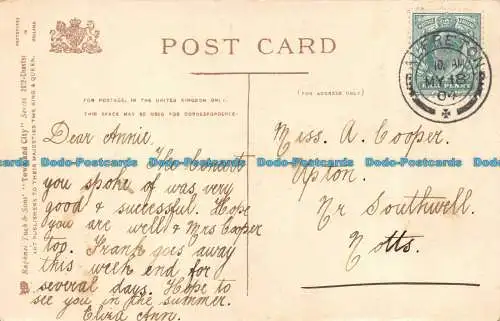 POST CARD
Raphael Tuck & Sons' "Town and City"
ART PUBLISHERS TO THEIR MAJESTIES THE KING & QUEEN.
FOR POSTAGE, IN THE UNITED KINGDOM ONLY,
THIS SPACE MAY BE USED FOR CORRESPONDENCE.
(FOR ADDRESS ONLY.)
ALFRETON
10. AM
MY 18
04
Dear Annie,
The Concert
you spoke of was very
good & successful. Hope
you are well & Mrs Cooper
too. Frank goes away
this week end for
several days. Hope to
see you in the summer.
Eliza Ann.
Miss. A. Cooper.
Upton.
Nr Southwell.
Notts.
Dodo-Postcards Dodo-Postcards Dodo-Postcards
Dodo-Postcards Dodo-Postcards Dodo-Postcards